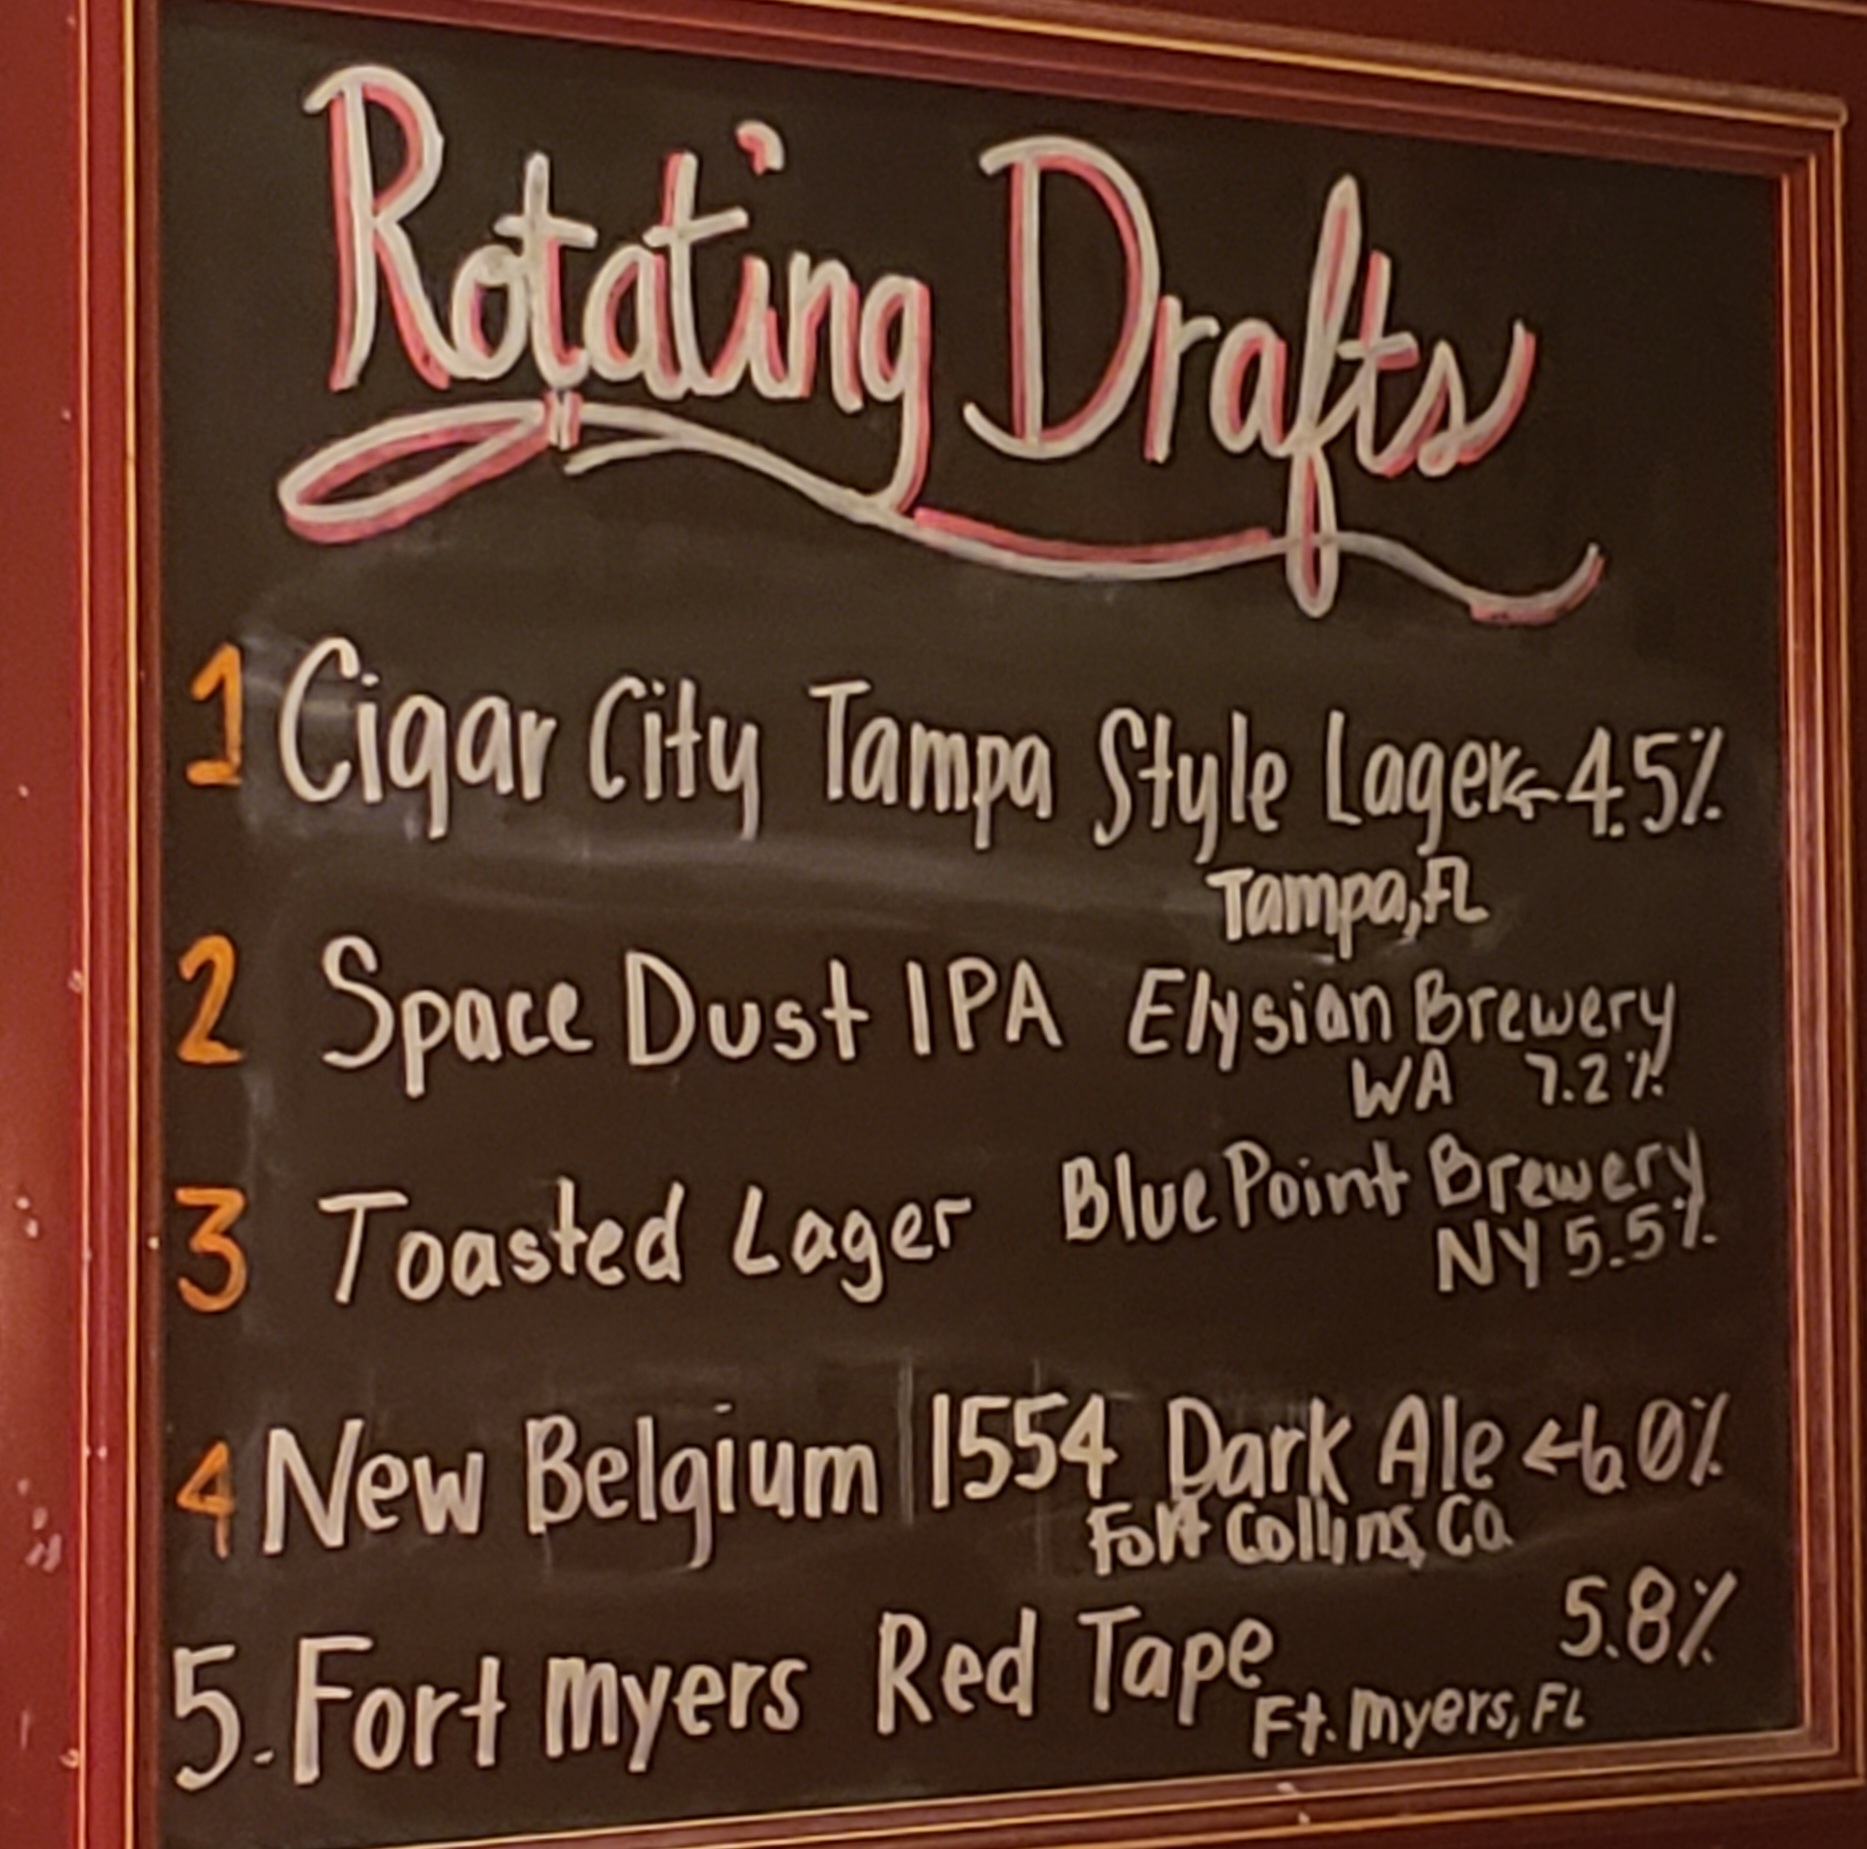 Rotating Drafts
1 Cigar City Tampa Style Lager ← 4.5%
Tampa, FL
2 Space Dust IPA Elysian Brewery
WA 7.2%
3 Toasted Lager Blue Point Brewery
NY 5.5%
4 New Belgium 1554 Dark Ale ← 6.0%
Fort Collins, Co
5. Fort myers Red Tape 5.8%
Ft. myers, FL